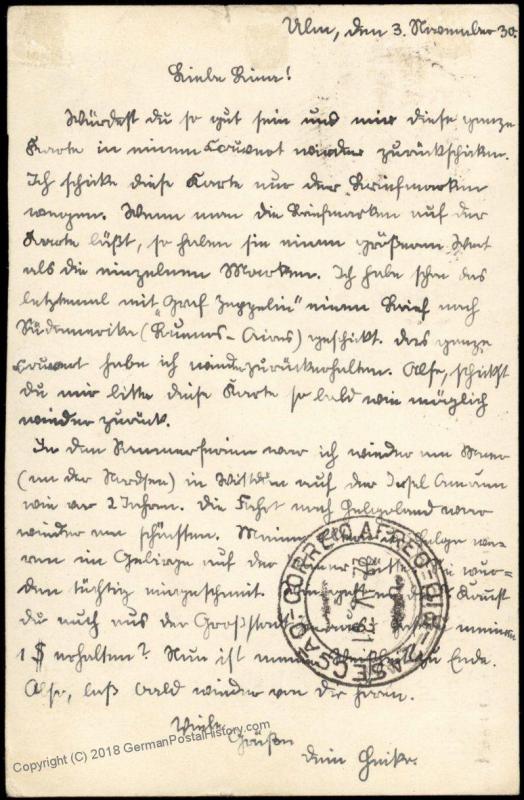 Ulm, den 3. November 30.
Würdest du so gut sein und mir diese ganze
Karte in einem Couvert wieder zurückschicken.
Ich schicke diese Karte nur der Briefmarken
wegen. Wenn man die Briefmarken auf der
Karte läßt, so haben sie einen größern Wert
als die einzelnen Marken. Ich habe schon das
letztemal mit "Graf Zeppelin" einen Brief nach
Südamerika (Buenos-Aires) geschickt. Das ganze
Couvert habe ich wieder zurückerhalten. Also, schickst
du mir bitte diese Karte so bald wie möglich
wieder zurück.
In den Sommerferien war ich wieder am Meer
(an der Nordsee) in auf der Insel Amrum
wie vor 2 Jahren. Die Fahrt nach Helgoland war
wieder am schönsten. Meine
ren im Gebirge auf der
den tüchtig eingeschneit.
du auch aus der Großstadt meinen
1 $ erhalten? Nun ist zu Ende.
Also, laß bald wieder von dir hören.
Viele
Grüße
dein
CORREIO AEREO
Copyright (C) 2018 GermanPostalHistory.com